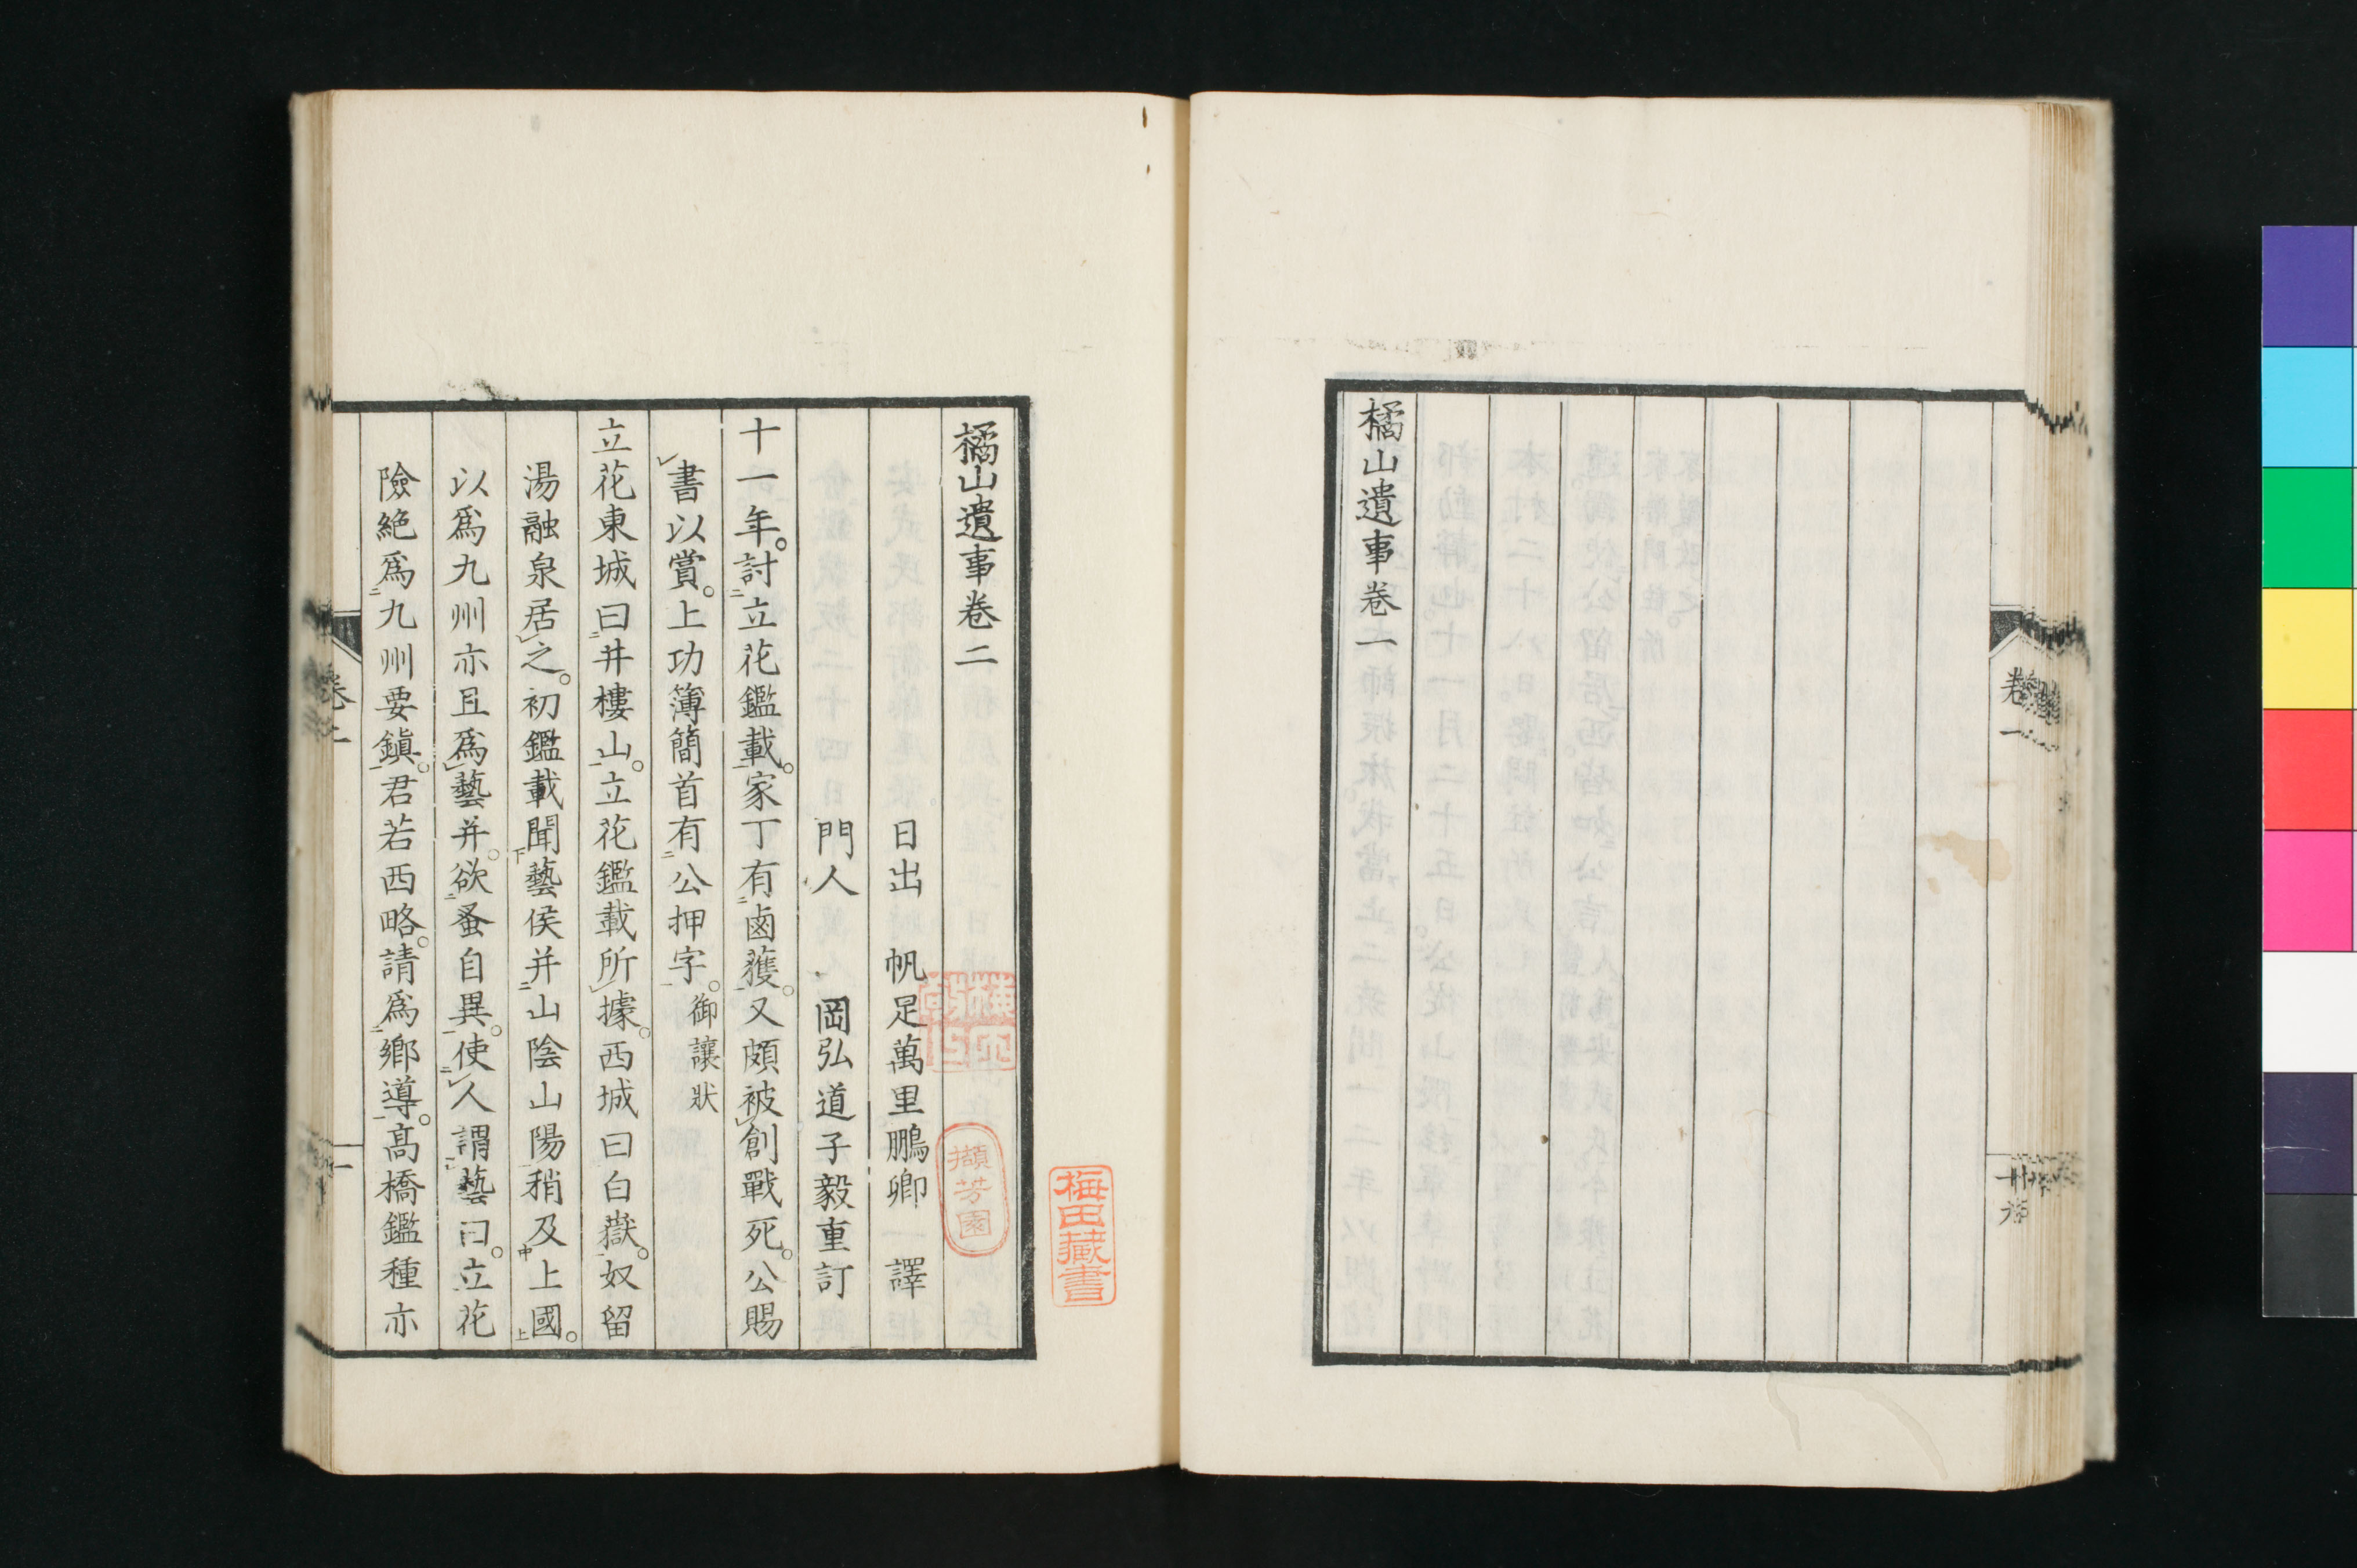 橘山遺事卷一
卷一
橘山遺事卷二
日出 帆足萬里鵬卿 譯
門人 岡弘道子毅重訂
十一年。討二立花鑑載一。家丁有二鹵獲一。又頗被レ創戰死。公賜
レ書以賞。上功簿簡首有二公押字一。御讓狀
立花東城曰二井樓山一。立花鑑載所レ據。西城曰白嶽。奴留
湯融泉居レ之。初鑑載聞下藝侯并二山陰山陽一稍及中上國上。
以爲九州亦且爲レ藝并。欲二蚤自異一。使二レ人謂一レ藝曰。立花
險絶爲二九州要鎭一。君若西略。請爲二鄉導一。高橋鑑種亦
擷芳園
梅田藏書